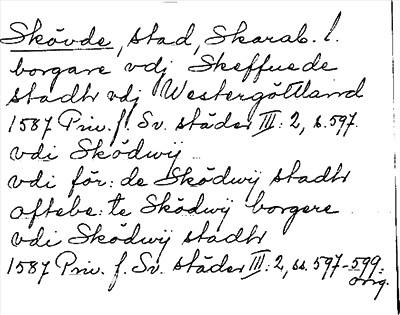 Skövde, stad, Skarab. l.
borgare vdj Skeffuede
stadh vdj Westergöttland
1587 Priv. f. Sv. städer III: 2, s. 597.
vdi Skôdwij
vdi för: de Skôdwij stadh
oftebe: te Skôdwij borgere
vdi Skôdwij stadh
1587 Priv. f. Sv. städer III: 2, ss. 597-599.
orig.